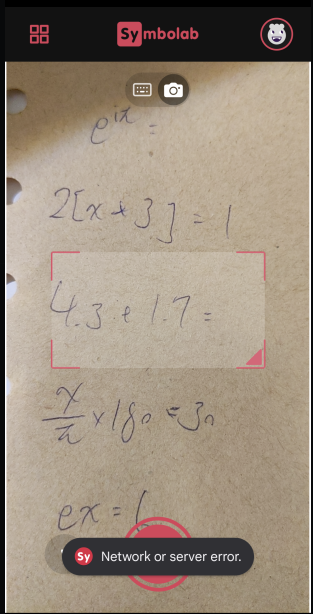 Symbolab
e^ix =
2[x + 3] = 1
4.3 + 1.7 =
x/π × 180 = 30
ex = 1
Sy Network or server error.